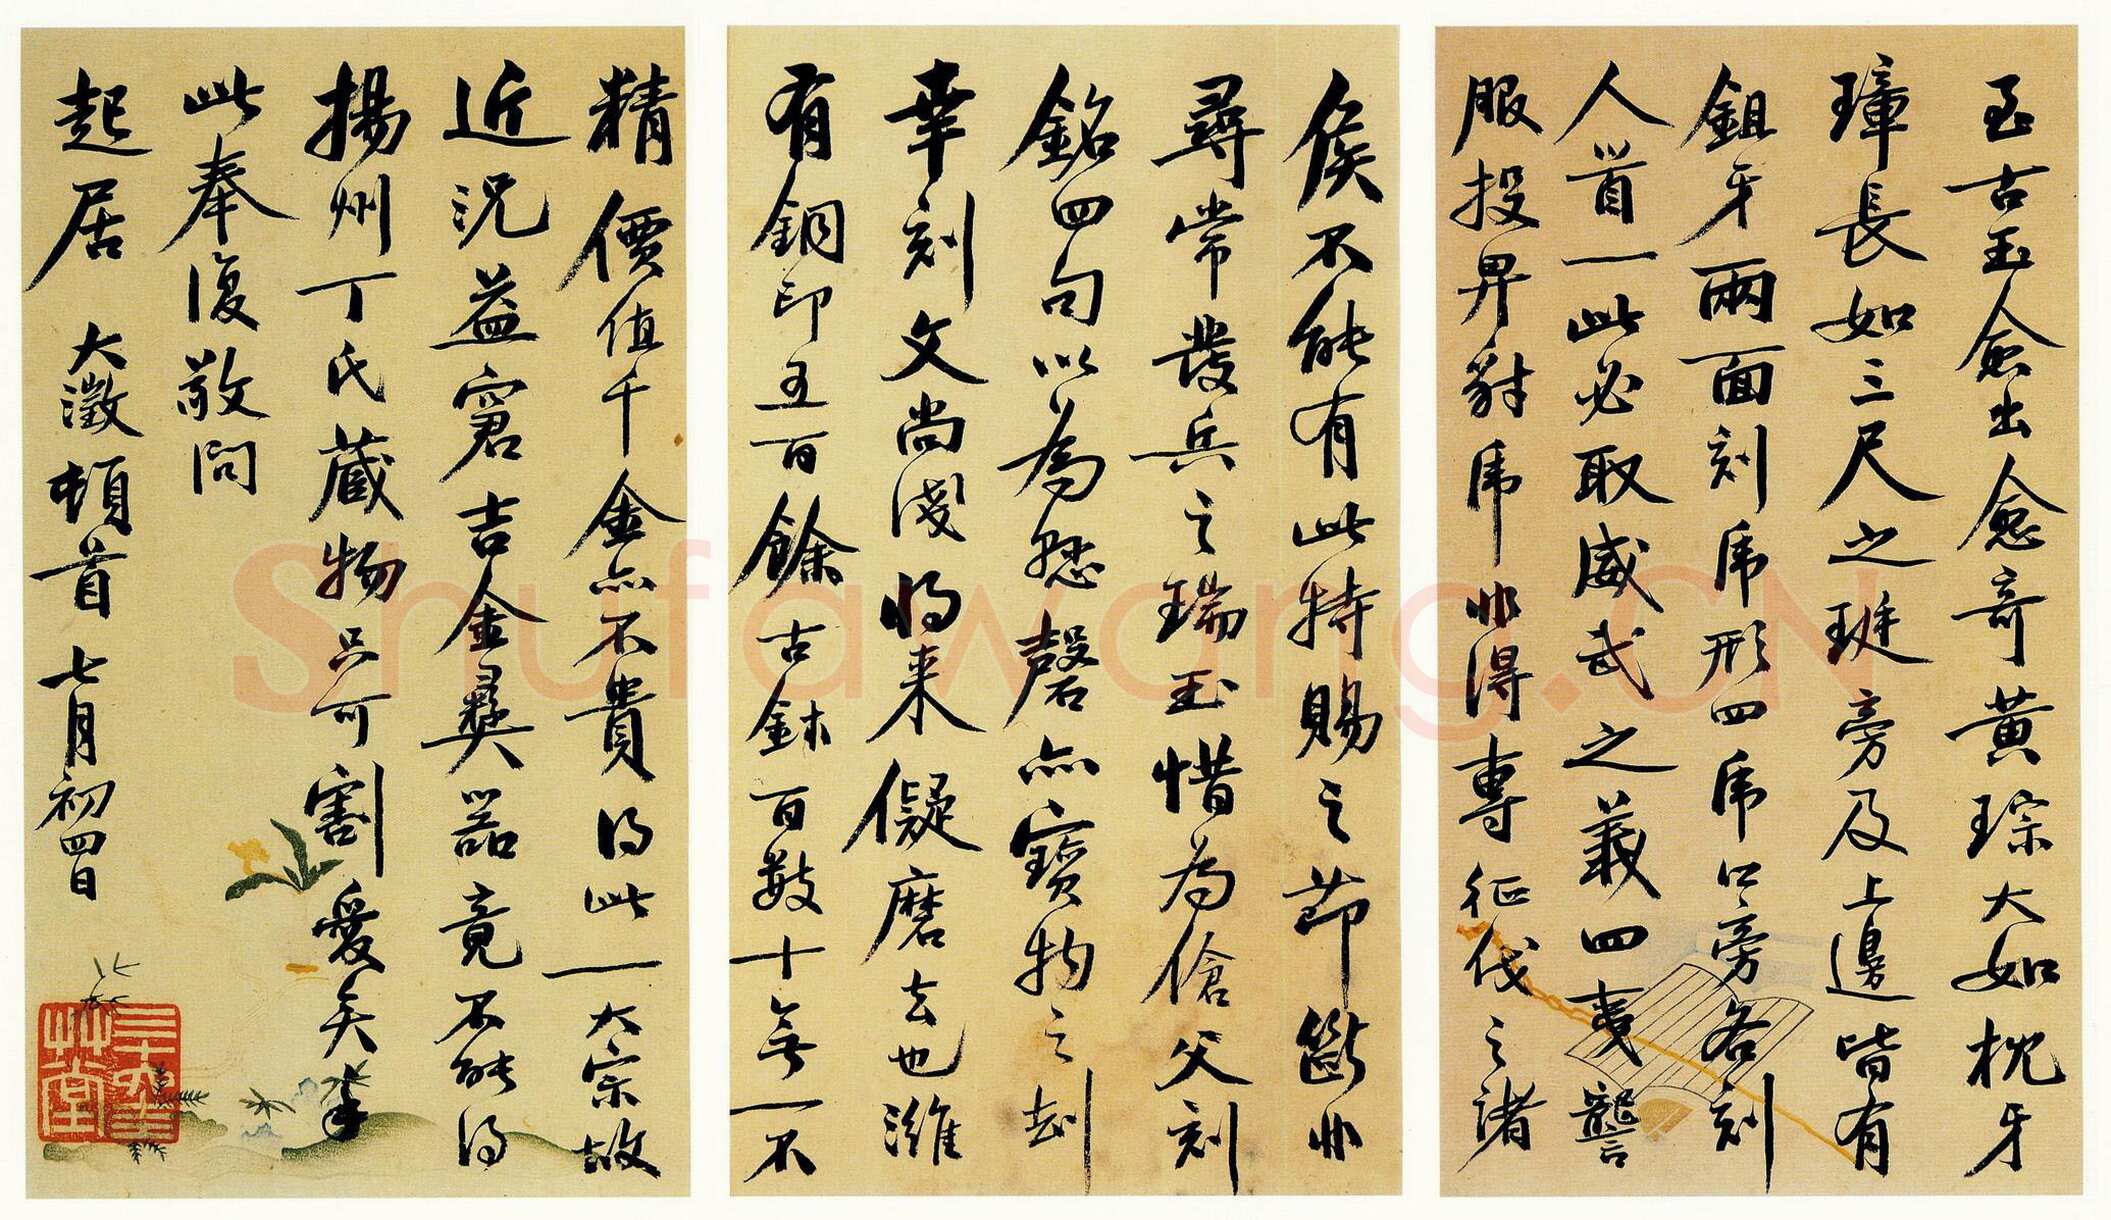 至古玉愈出愈奇黃琮大如枕牙
璋長如三尺之珽旁及上邊皆有
鉏牙兩面刻虎形四虎口旁各刻
人首一此必取威武之義四夷讋
服投畀豺虎非得專征伐之諸
矦不能有此特賜之節斷非
尋常發兵之瑞玉惜為傖父刻
銘四句以為懸磬亦寶物之劫
幸刻文尚淺將來儗磨去也濰
有銅印五百餘古鉥百數十無一不
精價值千金亦不貴得此一大宗故
近況益窘吉金彝器竟不能得
揚州丁氏藏物只可割愛矣率
此奉復敬問
起居 大澂頓首 七月初四日
Shufawang.CN